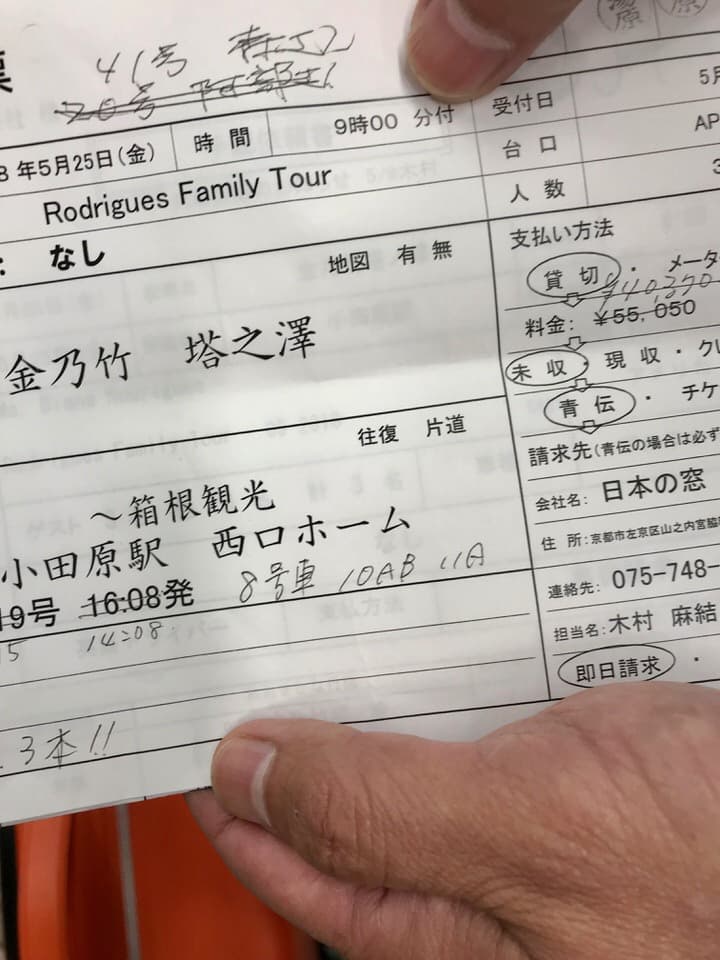 票
41号
20号 阿部
8年5月25日(金) 時間 9時00 分付 受付日 5月
Rodrigues Family Tour 台口 AP
: なし 地図 有 無 人数 3
支払い方法
貸切 ・ メータ
¥40,370
料金: ¥55,050
金乃竹 塔之澤
未収 ・ 現収 ・ クレ
青伝 ・ チケ
往復 片道
請求先(青伝の場合は必ず
~箱根観光
会社名: 日本の窓
小田原駅 西口ホーム
住所:京都市左京区山之内宮脇
19号 16:08発 8号車 10AB 11A
連絡先: 075-748-
15 14:08
担当名:木村 麻結
即日請求 ・
3本!!